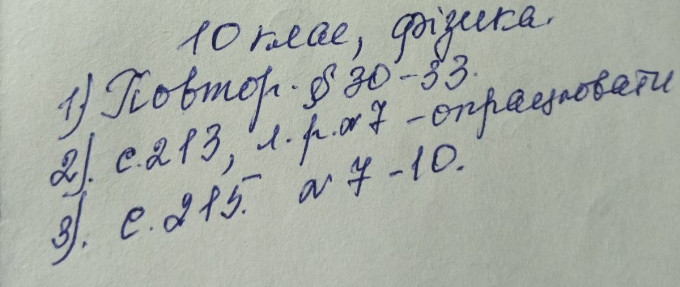 10 клас, фізика.
1) Повтор. § 30-33.
2). с. 213, л. р. №7 - опрацювати
3). с. 215. №7-10.